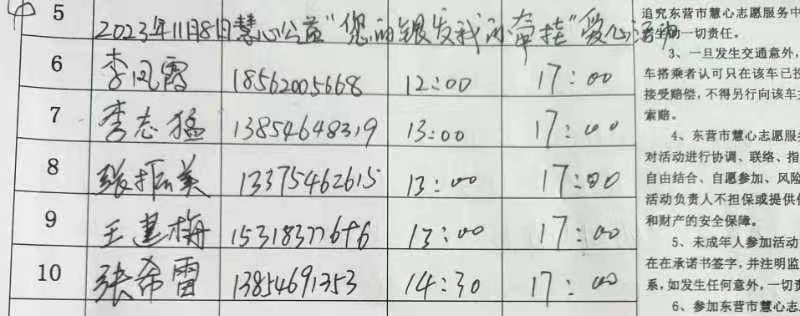 5 2023年11月8日慧心公益“您的银发我的牵挂”爱心活动
6 李风霞 18562005668 12:00 17:00
7 李志猛 13854648319 13:00 17:00
8 张振美 13375462615 13:00 17:00
9 王建梅 15318377676 13:00 17:00
10 张希雷 13854691353 14:30 17:00
追究东营市慧心志愿服务中
的一切责任。
3、一旦发生交通意外,
车搭乘者认可只在该车已投
接受赔偿,不得另行向该车主
索赔。
4、东营市慧心志愿服务
对活动进行协调、联络、指
自由结合、自愿参加、风险
活动负责人不担保或提供任
和财产的安全保障。
5、未成年人参加活动
在在承诺书签字,并注明监
系,如发生任何意外,一切责
6、参加东营市慧心志